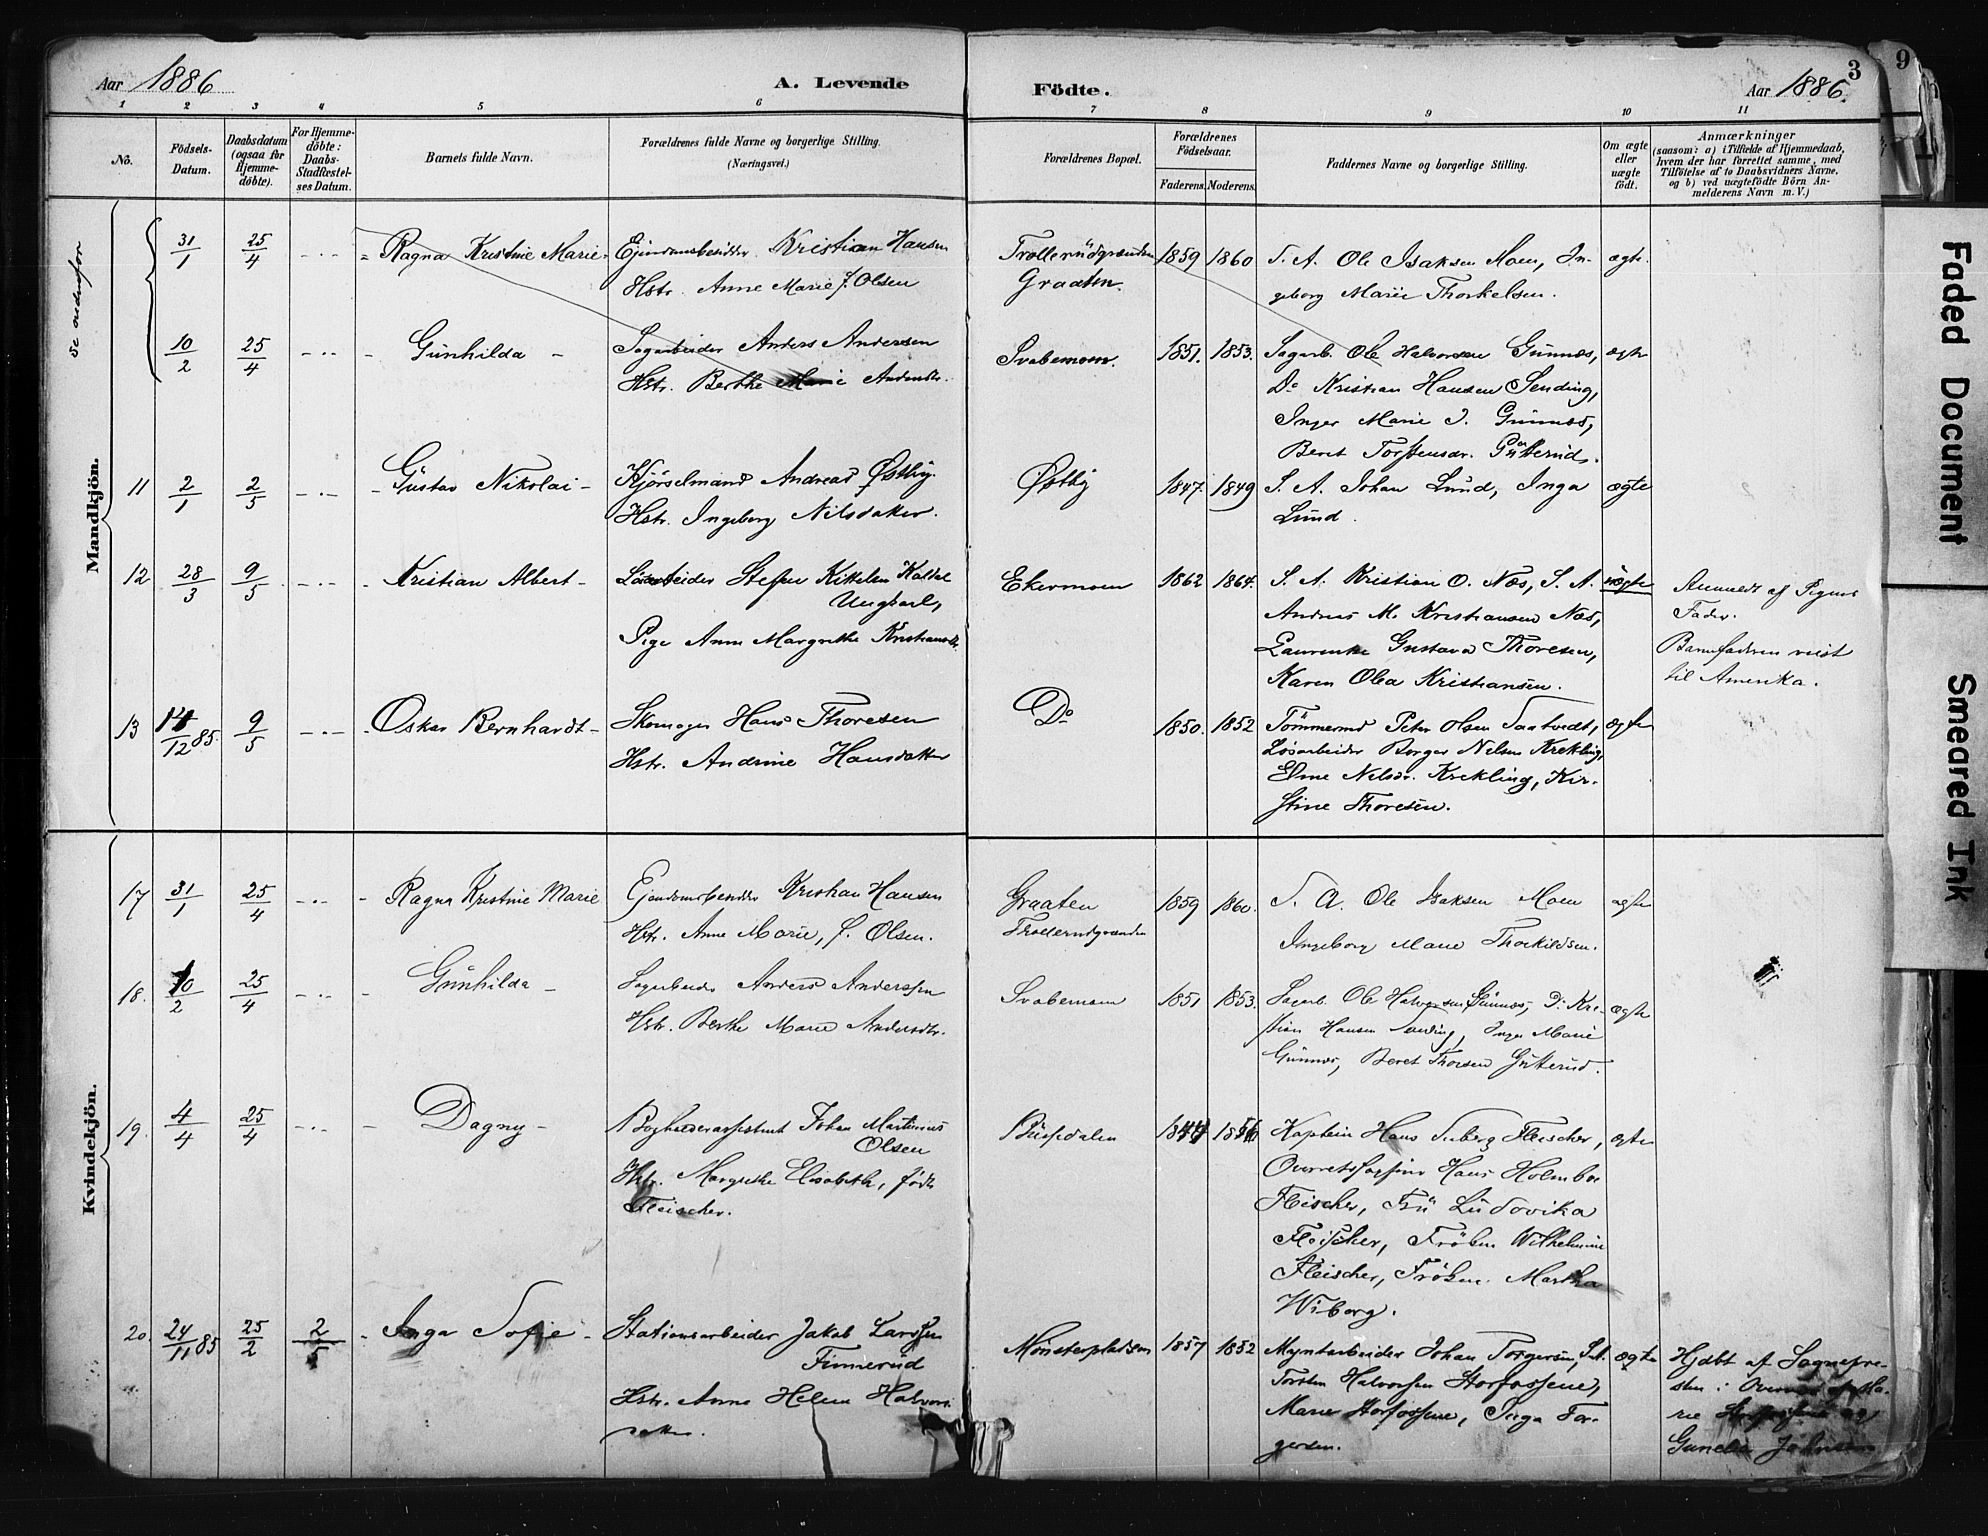 Aar 1886
A. Levende
Födte.
Aar 1886.
3
9
1 2 3 4 5 6 7 8 9 10 11
No.
Födsels-
Datum.
Daabsdatum
(ogsaa for
Hjemme-
döbte).
For Hjemme-
döbte:
Daabs-
Stadfæstel-
ses Datum.
Barnets fulde Navn.
Forældrenes fulde Navne og borgerlige Stilling.
(Næringsvei.)
Forældrenes Bopæl.
Forældrenes
Födselsaar.
Faderens. Moderens.
Faddernes Navne og borgerlige Stilling.
Om ægte
eller
uægte
födt.
Anmærkninger
(saasom: a) i Tilfælde af Hjemmedaab,
hvem der har forrettet samme, med
Tilföielse af to Daabsvidners Navne,
og b) ved uægtefödte Börn An-
melderens Navn m. V.)
Mandkjön.
se nedenfor
31/1 25/4 - Ragna Kristine Marie Kristian Hansen
Hstr. Anne Marie f. Olsen
Graaten.
1859 1860 S. A. Ole Isaksen Moen, In-
geborg Marie Thorkelsen.
ægte
10/2 25/4 - Gunhilda - Sagarbeider Anders Anderssen
Hstr. Berthe Marie Andersdtr.
Svabemoen. 1851. 1853. Sagarb. Ole Halvorsen Gunnæs, ægte
Do Kristian Hansen Sending,
Inger Marie J. Gunnæs,
Beret Torstensdr. Gutterud.
11 2/1 2/5 - Gustav Nikolai - Kjörselmand Andreas Østby.
Hstr. Ingeborg Nilsdatter.
Østby 1847. 1849 S. A. Johan Lund, Inga
Lund.
ægte
12 28/3 9/5 - Kristian Albert - Steffen Kittelsen
Ungkarl,
Pige Anne Margrethe Kristiansdtr.
Ekermoen 1862 1864. S. A. Kristian O. Næs, S. A.
Andreas M. Kristiansen Næs,
Laurentze Gustava Thoresen,
Karen Olea Kristiansen.
uægte
Anmeldt af Pigens
Fader.
Barnefaderen reist
til Amerika.
13 14/12 85. 9/5 - Oskar Bernhardt - Skomager Hans Thoresen
Hstr. Andrine Hansdatter
Do 1850. 1852 Tømmermd Peter Olsen Saatvedt,
Løsarbeider Borger Nilsen Krekling,
Nilsdr. Krekling, Kir-
stine Thoresen.
ægte
Kvindekjön.
17 31/1 25/4 - Ragna Kristine Marie Kristian Hansen
Hstr. Anne Marie, f. Olsen.
Graaten
1859 1860. S. A. Ole Isaksen Moen
Ingeborg Marie Thorkildsen.
ægte
18. 10/2 25/4 - Gunhilda - Sagarbeider Anders Anderssen
Hstr. Berthe Marie Andersdtr.
Svabemoen 1851 1853. Sagarb. Ole Halvorsen Gunnæs, Do Kri-
stian Hansen Sending, Inger Marie
Gunnæs, Beret Thorsen Gutterud.
ægte
19. 4/4 25/4 - Dagny - Bogholderassistent Johan Martinius
Olsen
Hstr. Margrethe Elisabeth, födt
Fleischer.
Kaptein Hans Fleischer, ægte
Hans Holmboe
Fleischer, Fru Ludovika
Fleischer, Frøken Wilhelmine
Fleischer, Frøken Martha
Wiborg.
20. 24/11 85 25/2 2/5 - Inga Sofie - Stationsarbeider Jakob Larssen
Finnerud
Hstr. Anne Helene Halvors-
datter.
Mønsterpladsen 1857 1852 Myntarbeider Johan Torgersen, S. A.
Torsten Halvorsen Storfossene,
Marie Storfossene, Inga Tor-
gersen.
ægte
Hjdbt af Sognepre-
sten i
Johnsen
Faded Document
Smeared Ink